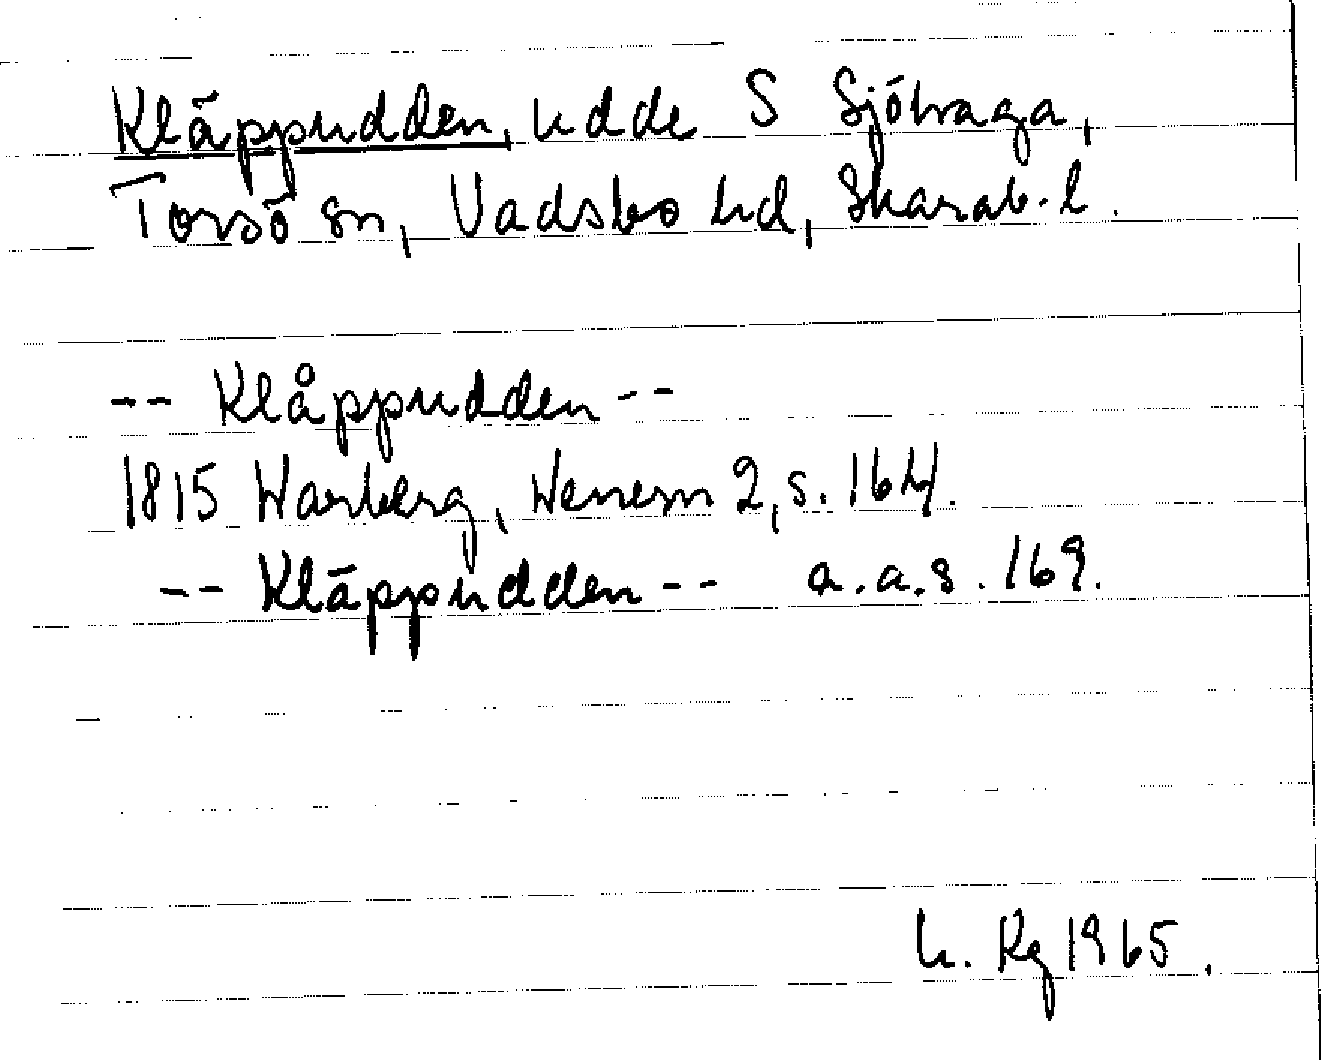 Kläppudden, udde S Sjöhaga,
Torsö sn, Vadsbo hd, Skarab. l.
-- Klåppudden --
1815 Warberg, Wenern 2, s. 164.
-- Kläppudden -- a.a.s. 169.
h. Rg 1965.